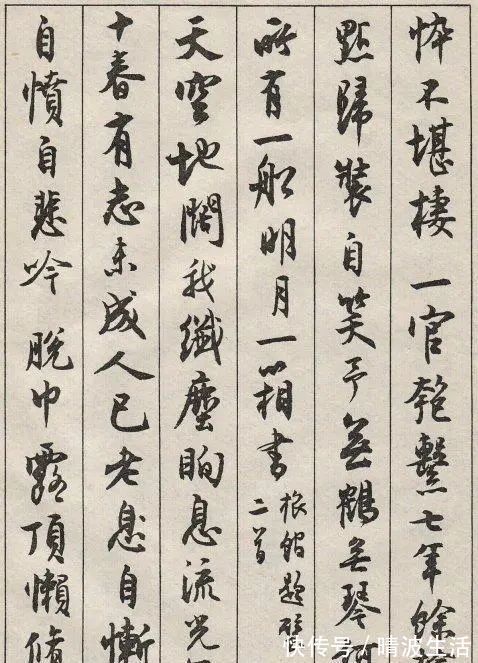 悴不堪棲 一官匏繫七年餘
點歸裝自笑予無鶴無琴
所有一船明月一箱書 旅館題壁
二首
天空地闊我纖塵眴息流光
十春有志未成人已老息自慚
自憤自悲吟 脫巾露頂懶脩
快传号/晴波生活